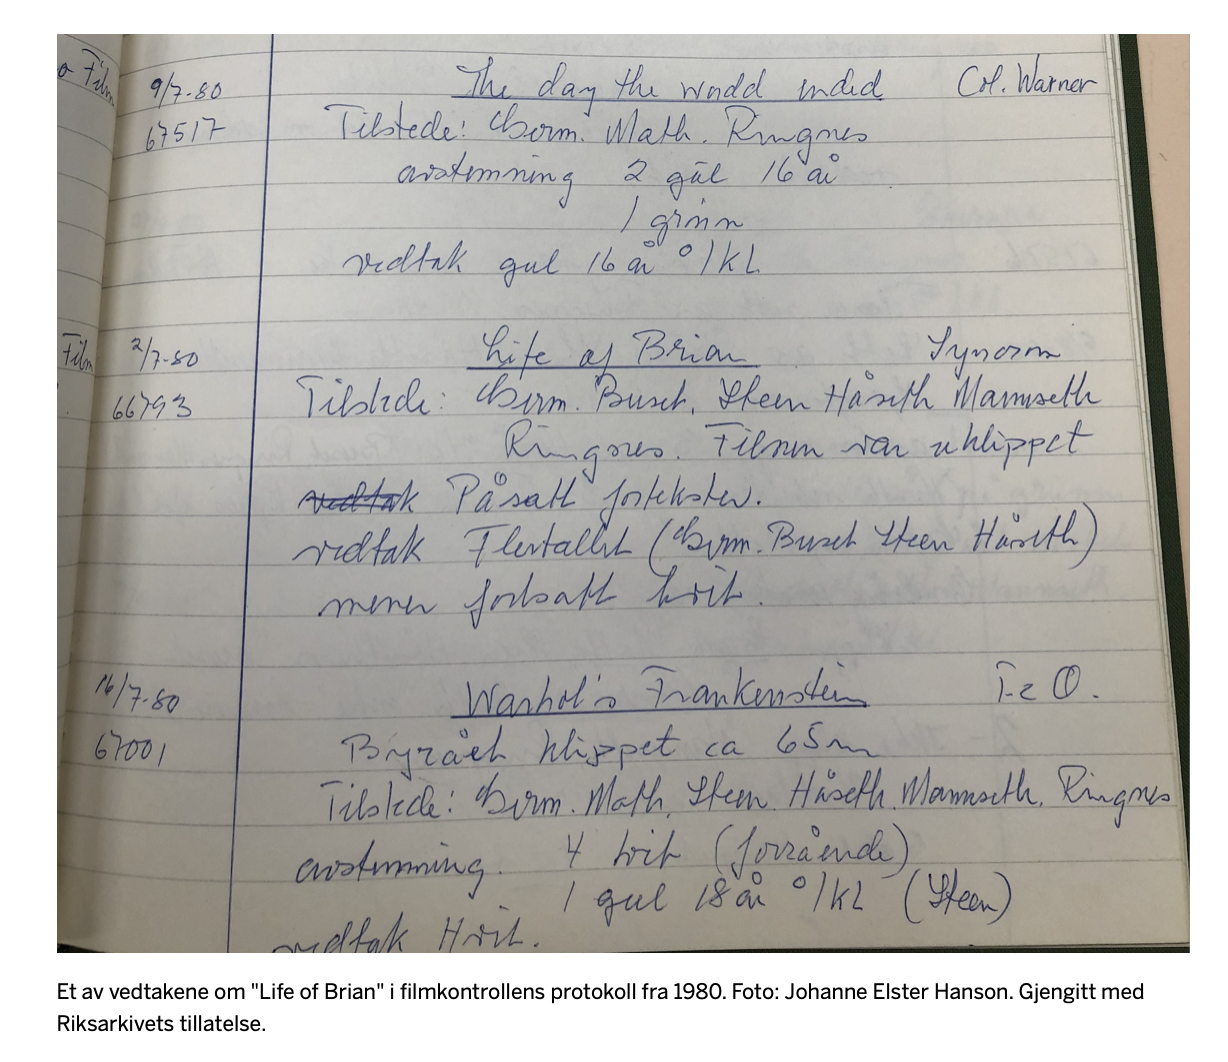 Film 9/7-80 The day the world ended Col. Warner
67517 Tilstede: Berm. Math. Ringnes
avstemning 2 gul 16 år
1 grønn
vedtak gul 16 år °/kl
Film 2/7-80 Life of Brian Synorm
66793 Tilstede: Berm. Buset, Steen Håseth Mannseth
Ringnes. Filmen var uklippet
vedtak Påsatt fortekster.
vedtak Flertallet (Berm. Buset Steen Håseth)
mener fortsatt hvit.
16/7-80 Warhol's Frankenstein T-e O.
67001 Byrået klippet ca 65m
Tilstede: Berm. Math. Steen. Håseth. Mannseth. Ringnes
avstemning. 4 hvit (forrående)
1 gul 18 år °/kl (Steen)
vedtak Hvit.
Et av vedtakene om "Life of Brian" i filmkontrollens protokoll fra 1980. Foto: Johanne Elster Hanson. Gjengitt med
Riksarkivets tillatelse.